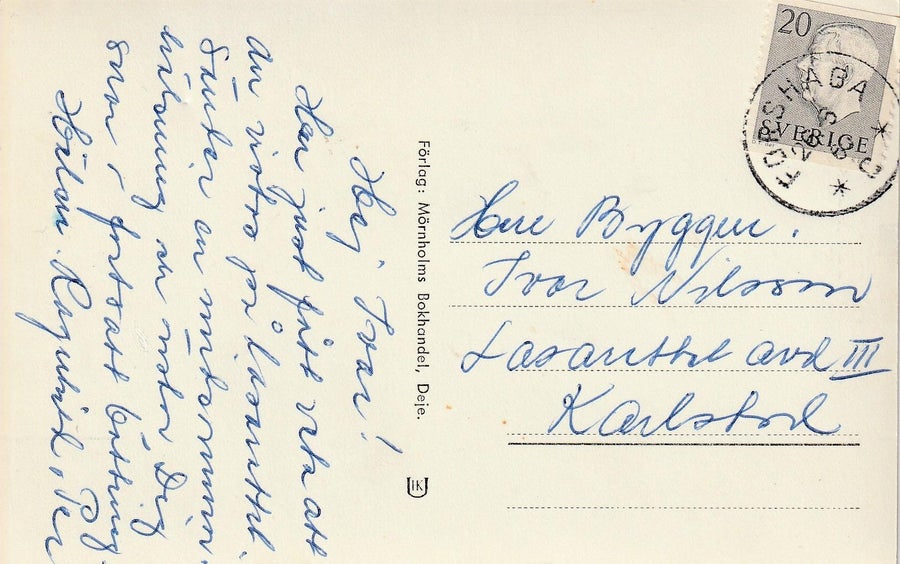 Hej. Ivar!
Har just fått veta att
du vistas på lasarettet.
Sänder en midsommar
hälsning och önskar Dig
snar i fortsatt bättring.
Hälsn. Ragnhild o Per
Förlag: Mörnholms Bokhandel, Deje.
IK
20
SVERIGE
FORSHAGA
Herr Byggm.
Ivar Nilsson
Lasarettet avd III
Karlstad